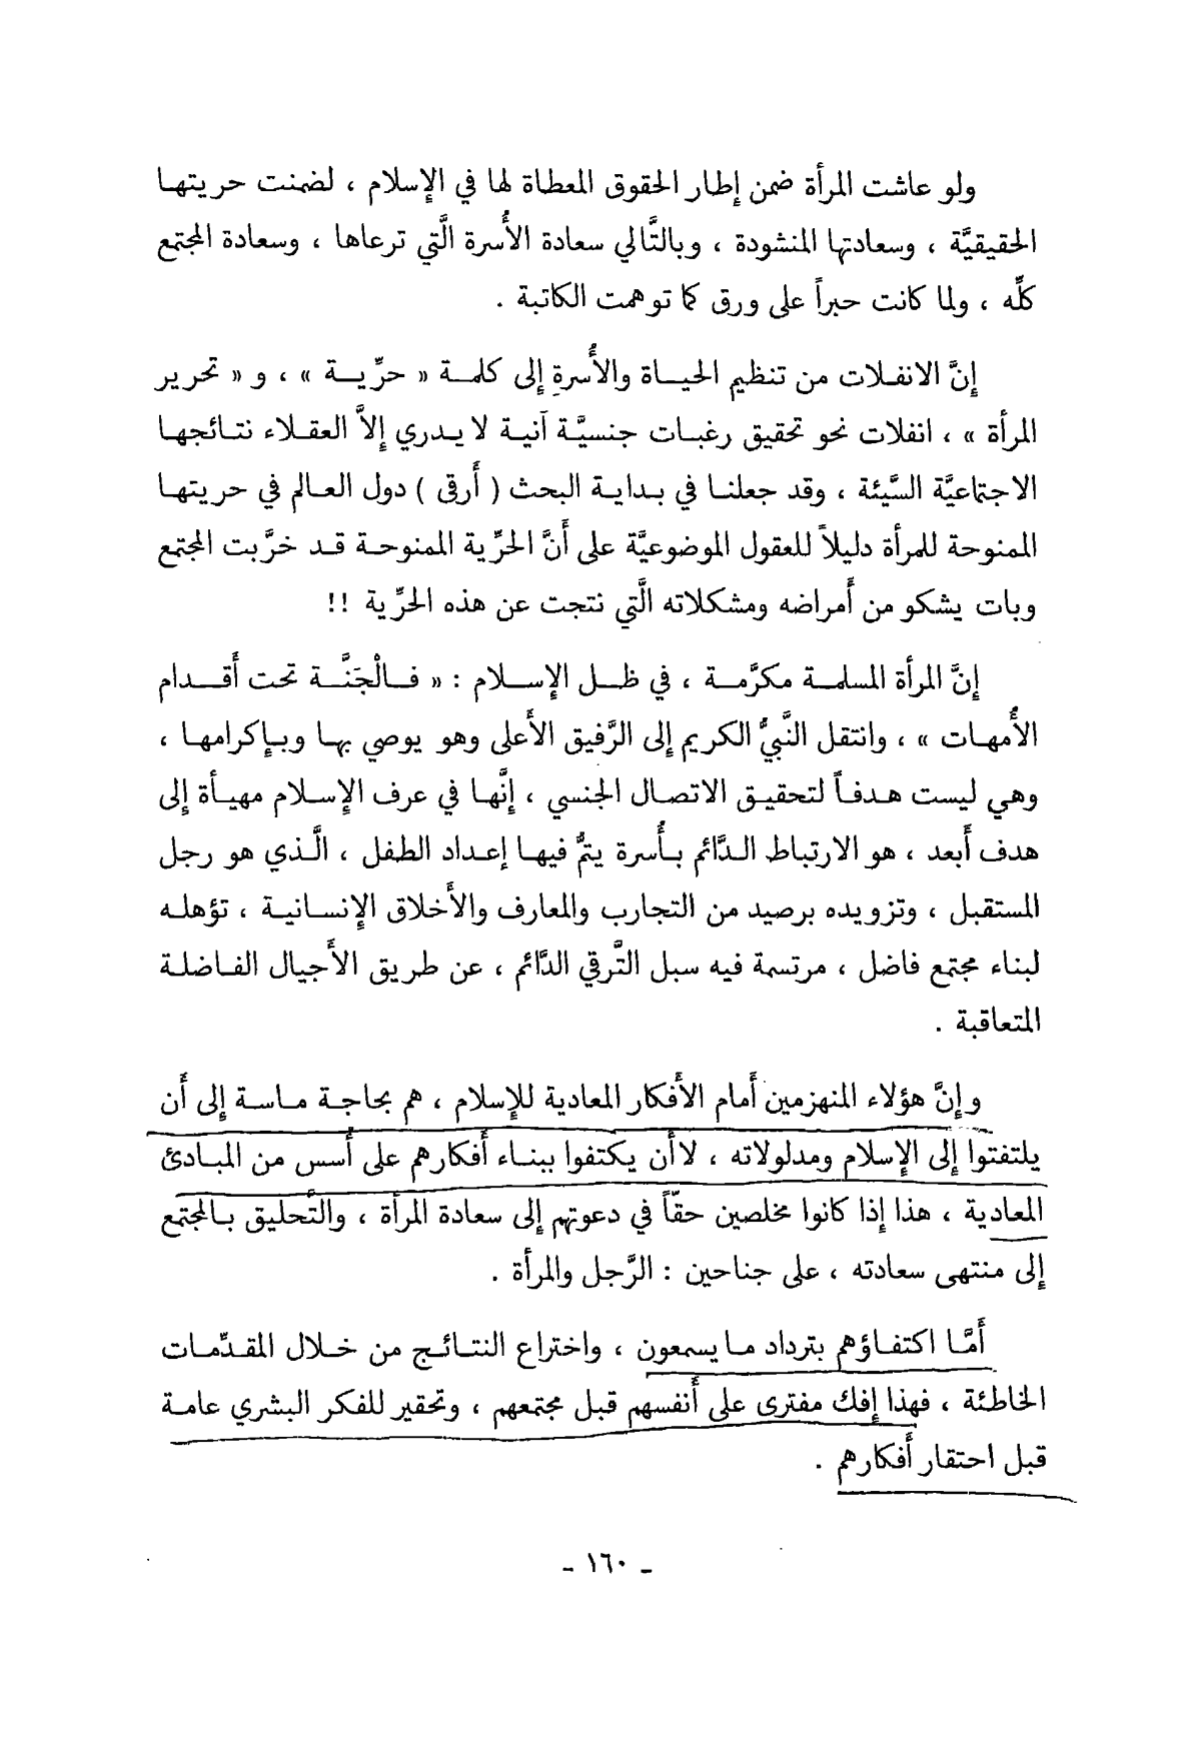 ولو عاشت المرأة ضمن إطار الحقوق المعطاة لها في الإسلام ، لضمنت حريتها
الحقيقيَّة ، وسعادتها المنشودة ، وبالتَّالي سعادة الأُسرة الَّتي ترعاها ، وسعادة المجتمع
كلِّه ، ولما كانت حبراً على ورق كما توهمت الكاتبة .
إنَّ الانفلات من تنظيم الحياة والأُسرة إلى كلمة « حرِّية » ، و « تحرير
المرأة » ، انفلات نحو تحقيق رغبات جنسيَّة آنية لا يدري إلاَّ العقلاء نتائجها
الاجتماعيَّة السَّيئة ، وقد جعلنا في بداية البحث ( أَرقى ) دول العالم في حريتها
الممنوحة للمرأة دليلاً للعقول الموضوعيَّة على أَنَّ الحرِّية الممنوحة قد خرَّبت المجتمع
وبات يشكو من أَمراضه ومشكلاته الَّتي نتجت عن هذه الحرِّية !!
إنَّ المرأة المسلمة مكرَّمة ، في ظل الإسلام : « فالْجَنَّة تحت أَقدام
الأُمهات » ، وانتقل النَّبيُّ الكريم إلى الرَّفيق الأَعلى وهو يوصي بها وبإكرامها ،
وهي ليست هدفاً لتحقيق الاتصال الجنسي ، إنَّها في عرف الإسلام مهيأة إلى
هدف أَبعد ، هو الارتباط الدَّائم بأُسرة يتمُّ فيها إعداد الطفل ، الَّذي هو رجل
المستقبل ، وتزويده برصيد من التجارب والمعارف والأَخلاق الإنسانية ، تؤهله
لبناء مجتمع فاضل ، مرتسمة فيه سبل التَّرقي الدَّائم ، عن طريق الأَجيال الفاضلة
المتعاقبة .
وإنَّ هؤلاء المنهزمين أَمام الأَفكار المعادية للإسلام ، هم بحاجة ماسة إلى أَن
يلتفتوا إلى الإسلام ومدلولاته ، لا أَن يكتفوا ببناء أَفكارهم على أُسس من المبادئ
المعادية ، هذا إذا كانوا مخلصين حقّاً في دعوتهم إلى سعادة المرأة ، والتَّحليق بالمجتمع
إلى منتهى سعادته ، على جناحين : الرَّجل والمرأة .
أَمَّا اكتفاؤهم بترداد ما يسمعون ، واختراع النتائج من خلال المقدِّمات
الخاطئة ، فهذا إفك مفترى على أَنفسهم قبل مجتمعهم ، وتحقير للفكر البشري عامة
قبل احتقار أَفكارهم .
- ١٦٠ -